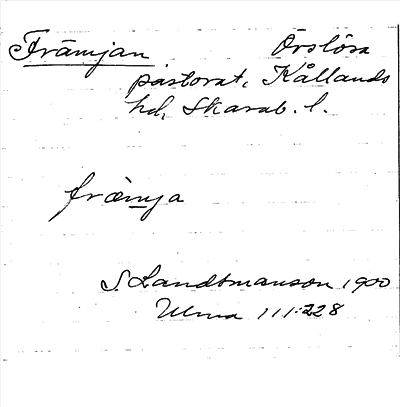 Främjan. Örslösa
pastorat, Kållands
hd, Skarab. l.
främja
S. Landtmanson 1900
Ulma 111:228